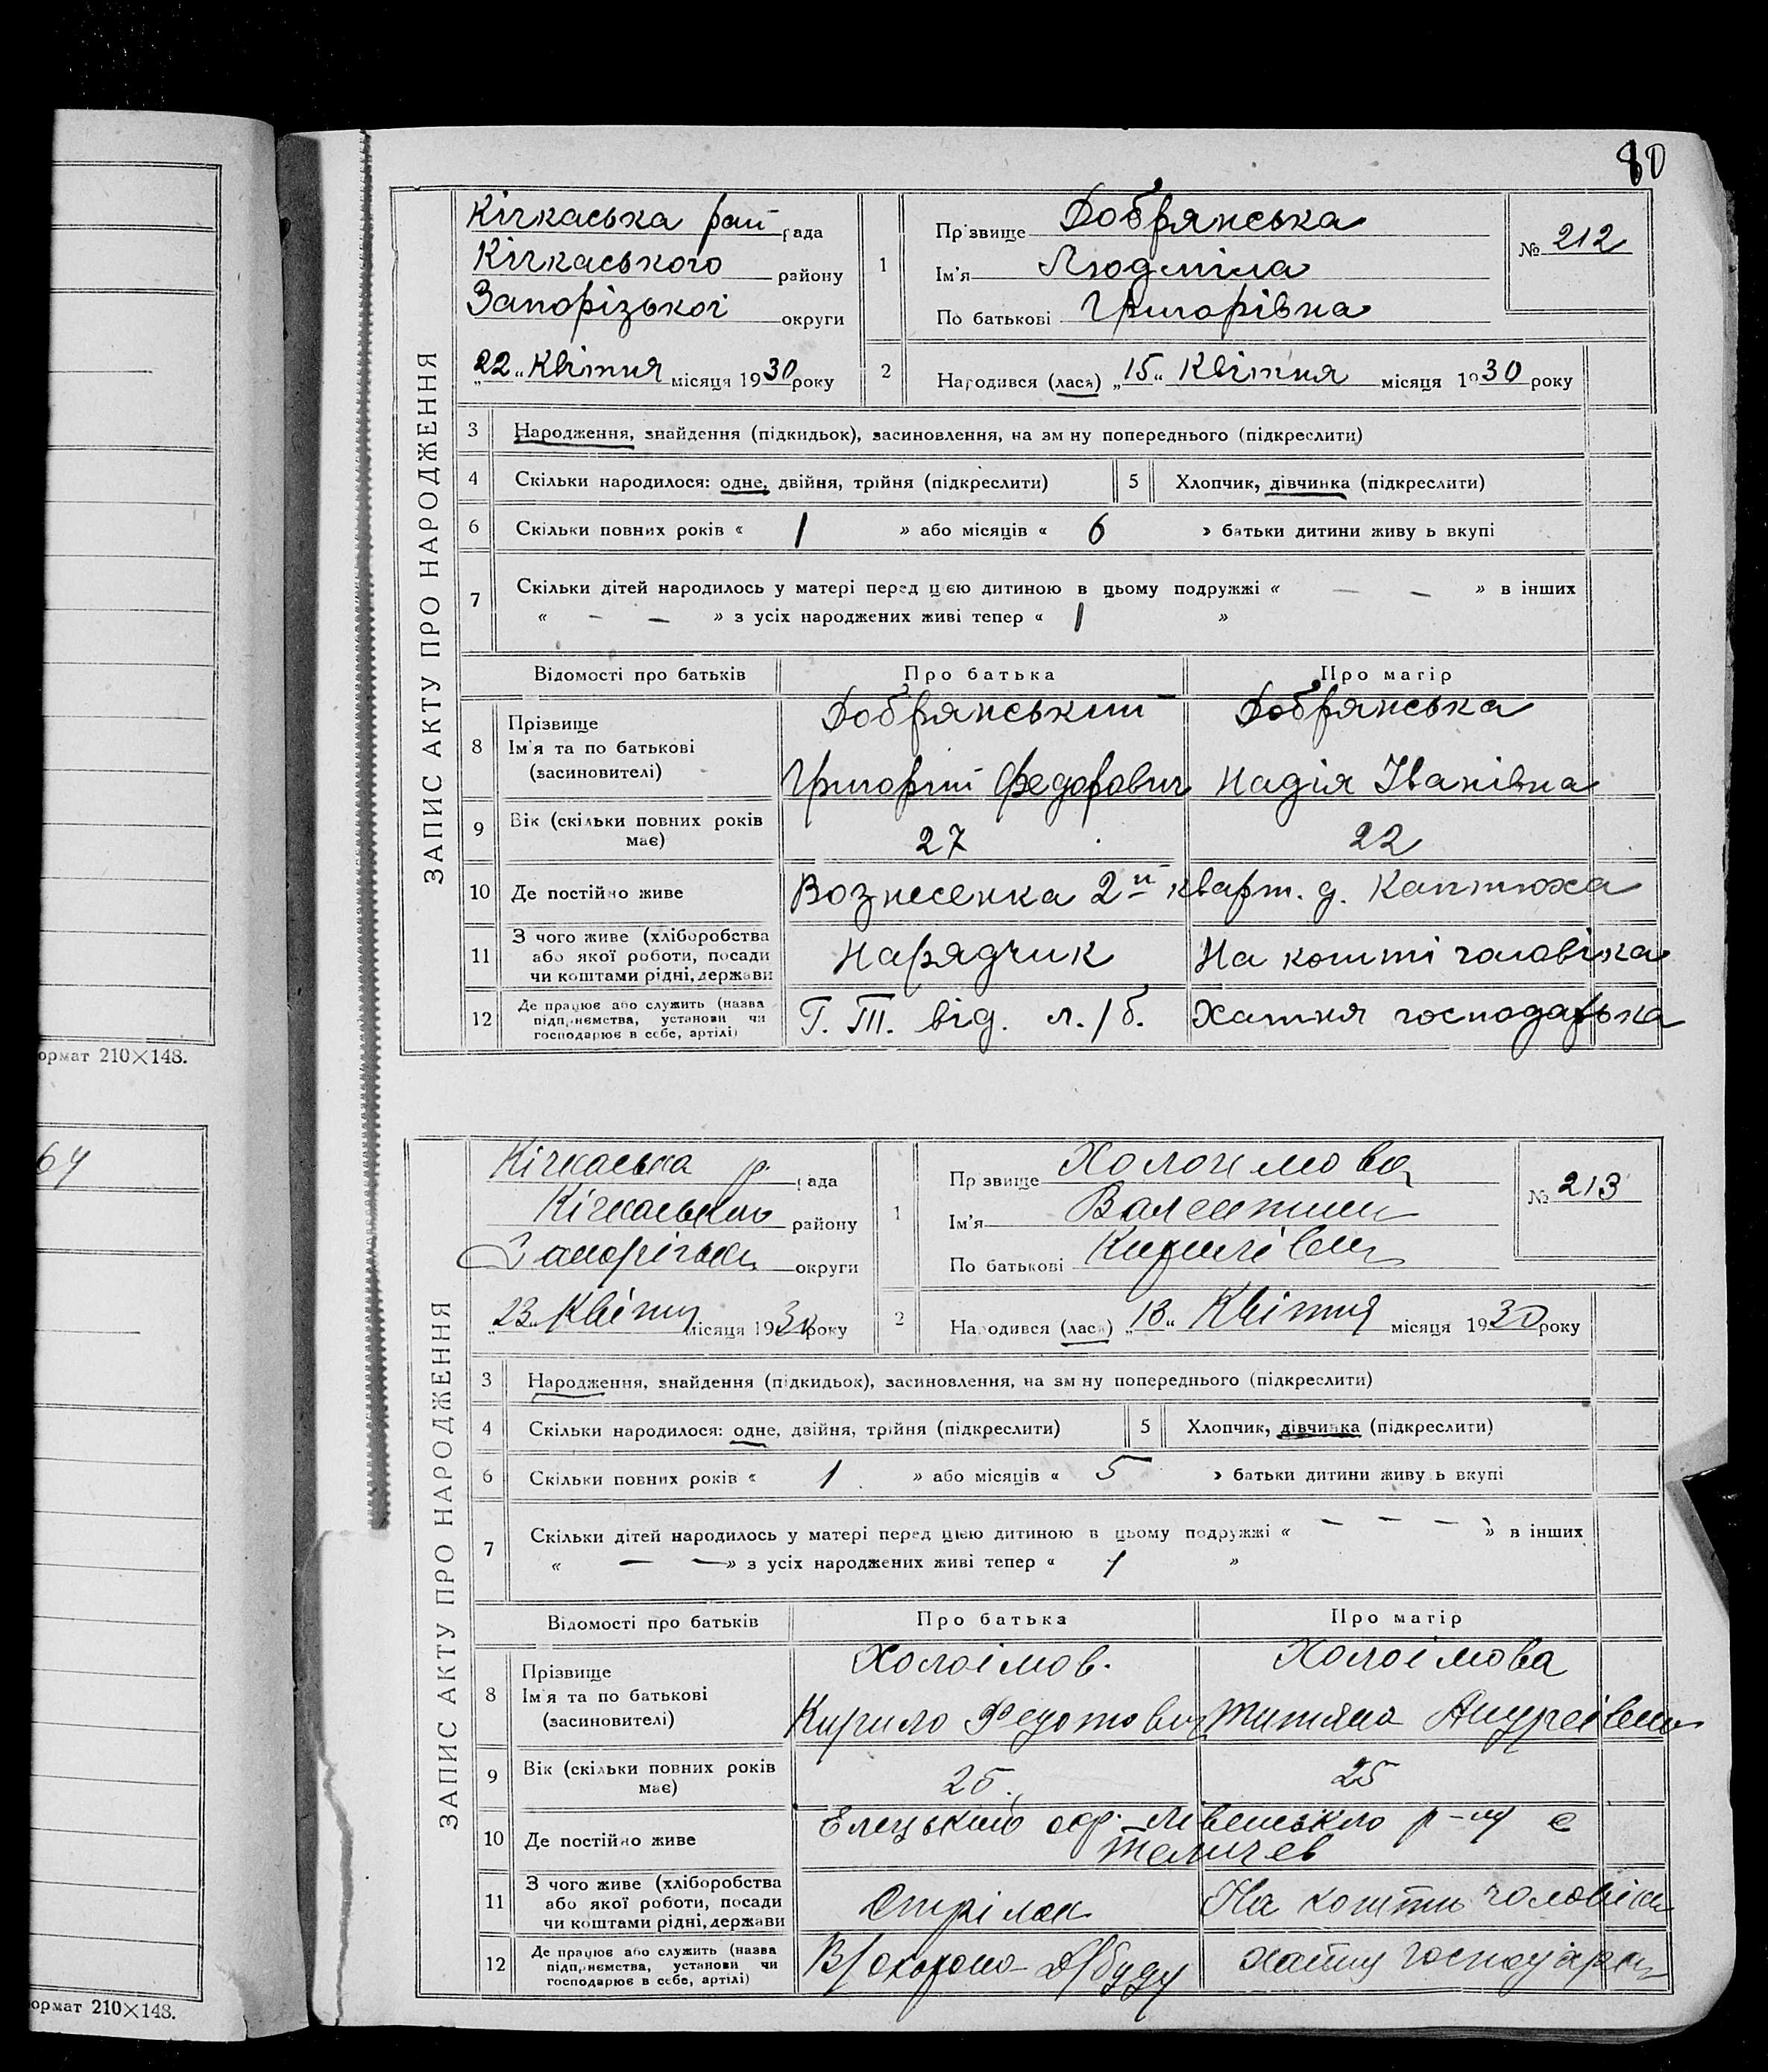 80
ЗАПИС АКТУ ПРО НАРОДЖЕННЯ
Кічкаська рай рада
Кічкаського району
Запорізької округи
„22“ Квітня місяця 1930 року
1
Прізвище Добрянська
Ім'я Людміла
По батькові Григорівна
№ 212
2
Народився (лася) „15“ Квітня місяця 1930 року
3 Народження, знайдення (підкидьок), засиновлення, на зм ну попереднього (підкреслити)
4 Скільки народилося: одне, двійня, трійня (підкреслити) 5 Хлопчик, дівчинка (підкреслити)
6 Скільки повних років « 1 » або місяців « 6 » батьки дитини живу ь вкупі
7 Скільки дітей народилось у матері перед цією дитиною в цьому подружжі « — — » в інших
« — — » з усіх народжених живі тепер « 1 »
Відомості про батьків Про батька Про матір
8 Прізвище Ім'я та по батькові (засиновителі)
Добрянський Добрянська
Григорій Федорович Надія Іванівна
9 Вік (скільки повних років має) 27 22
10 Де постійно живе Вознесенка 2й кварт. д. Каптюха
11 З чого живе (хліборобства або якої роботи, посади чи коштами рідні, держави Нарядчик На кошті чоловіка
12 Де працює або служить (назва підприємства, установи чи господарює в себе, артілі) Г. Т.П. від. л./б. Хатня господарька
ормат 210×148.
64
ЗАПИС АКТУ ПРО НАРОДЖЕННЯ
Кічкаська р. рада
Кічкаського району
Запорізька округи
„23“ Квітня місяця 1930 року
1
Пр звище Холоімова
Ім'я Валентина
По батькові Кирилівна
№ 213
2
Народився (лася) „18“ Квітня місяця 1930 року
3 Народження, знайдення (підкидьок), засиновлення, на зм ну попереднього (підкреслити)
4 Скільки народилося: одне, двійня, трійня (підкреслити) 5 Хлопчик, дівчинка (підкреслити)
6 Скільки повних років « 1 » або місяців « 5 » батьки дитини живу ь вкупі
7 Скільки дітей народилось у матері перед цією дитиною в цьому подружжі « — — — » в інших
« — — » з усіх народжених живі тепер « 1 »
Відомості про батьків Про батька Про матір
8 Прізвище Ім'я та по батькові (засиновителі)
Холоімов. Холоімова
Кирило Федотович Титяна Андреівна
9 Вік (скільки повних років має) 25 25
10 Де постійно живе Елецький окр. Лівенського р-ну с
Теличев
11 З чого живе (хліборобства або якої роботи, посади чи коштами рідні, держави Стрілок На кошти чоловіка
12 Де працює або служить (назва підприємства, установи чи господарює в себе, артілі) В/охорона Д/буду хатня господарка
ормат 210×148.